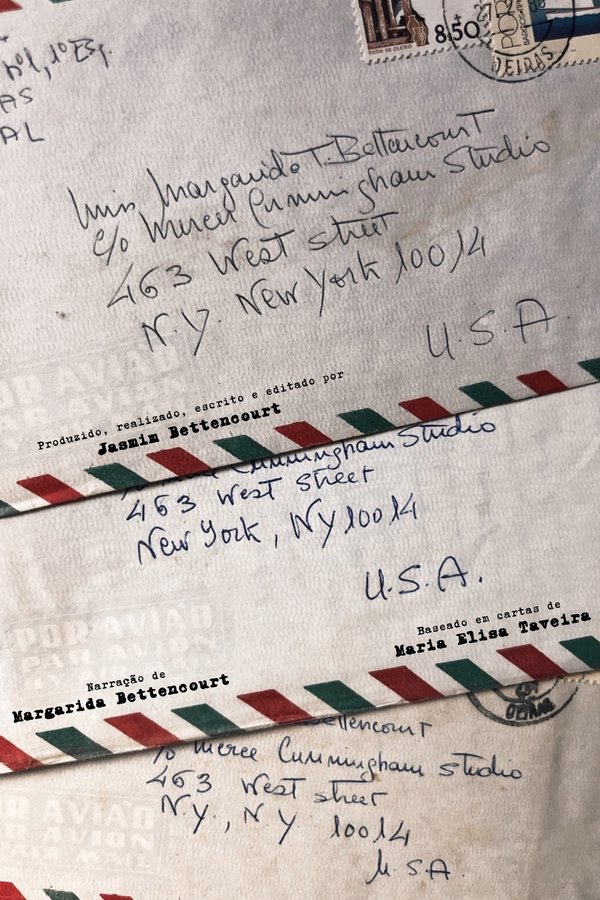 nº1, 1º Esq.
AS
AL
RODA DE OLEIRO
8$50
POR
OEIRAS
Miss Margarida T. Bettencourt
c/o Merce Cunningham Studio
463 West street
N.Y. New York 10014
U.S.A.
POR AVIÃO
Produzido, realizado, escrito e editado por
Jasmim Bettencourt
Cunningham Studio
463 West Street
New York, NY 10014
U.S.A.
POR AVIÃO
PAR AVION
Baseado em cartas de
Maria Elisa Taveira
Narração de
Margarida Bettencourt
OEIRAS
Bettencourt
c/o Merce Cunningham Studio
463 West street
N.Y., N.Y 10014
U.S.A.
POR AVIÃO
PAR AVION
AIR MAIL